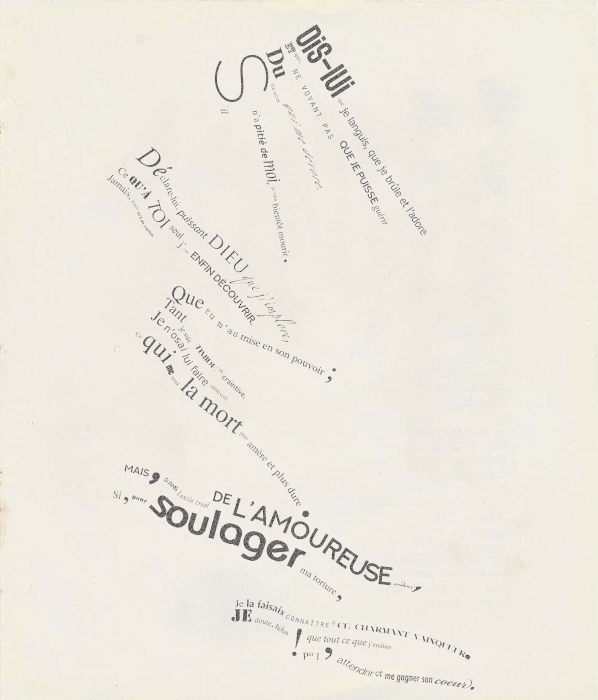 DiS-lUi que je languis, que je brûle et l'adore
ET que, NE VOYANT PAS QUE JE PUISSE guérir
Du qui me dévore,
S'il n'a pitié de moi, bientôt mourir.
Déclare-lui, puissant DIEU que j'implore,
Ce QU'A TOI seul j' ENFIN DÉCOUVRIR.
Jamais,
Que tu m'as mise en son pouvoir ;
Tant je suis craintive,
Je n'osai lui faire
Ce qui me rend la mort plus amère et plus dure.
MAIS, DANS l'excès cruel DE L'AMOUREUSE ardeur,
Si, pour soulager ma torture,
je la faisais CONNAITRE A CE CHARMANT VAINQUEUR.
JE doute, hélas ! que tout ce que j'endure
pût l'attendrir et me gagner son coeur.